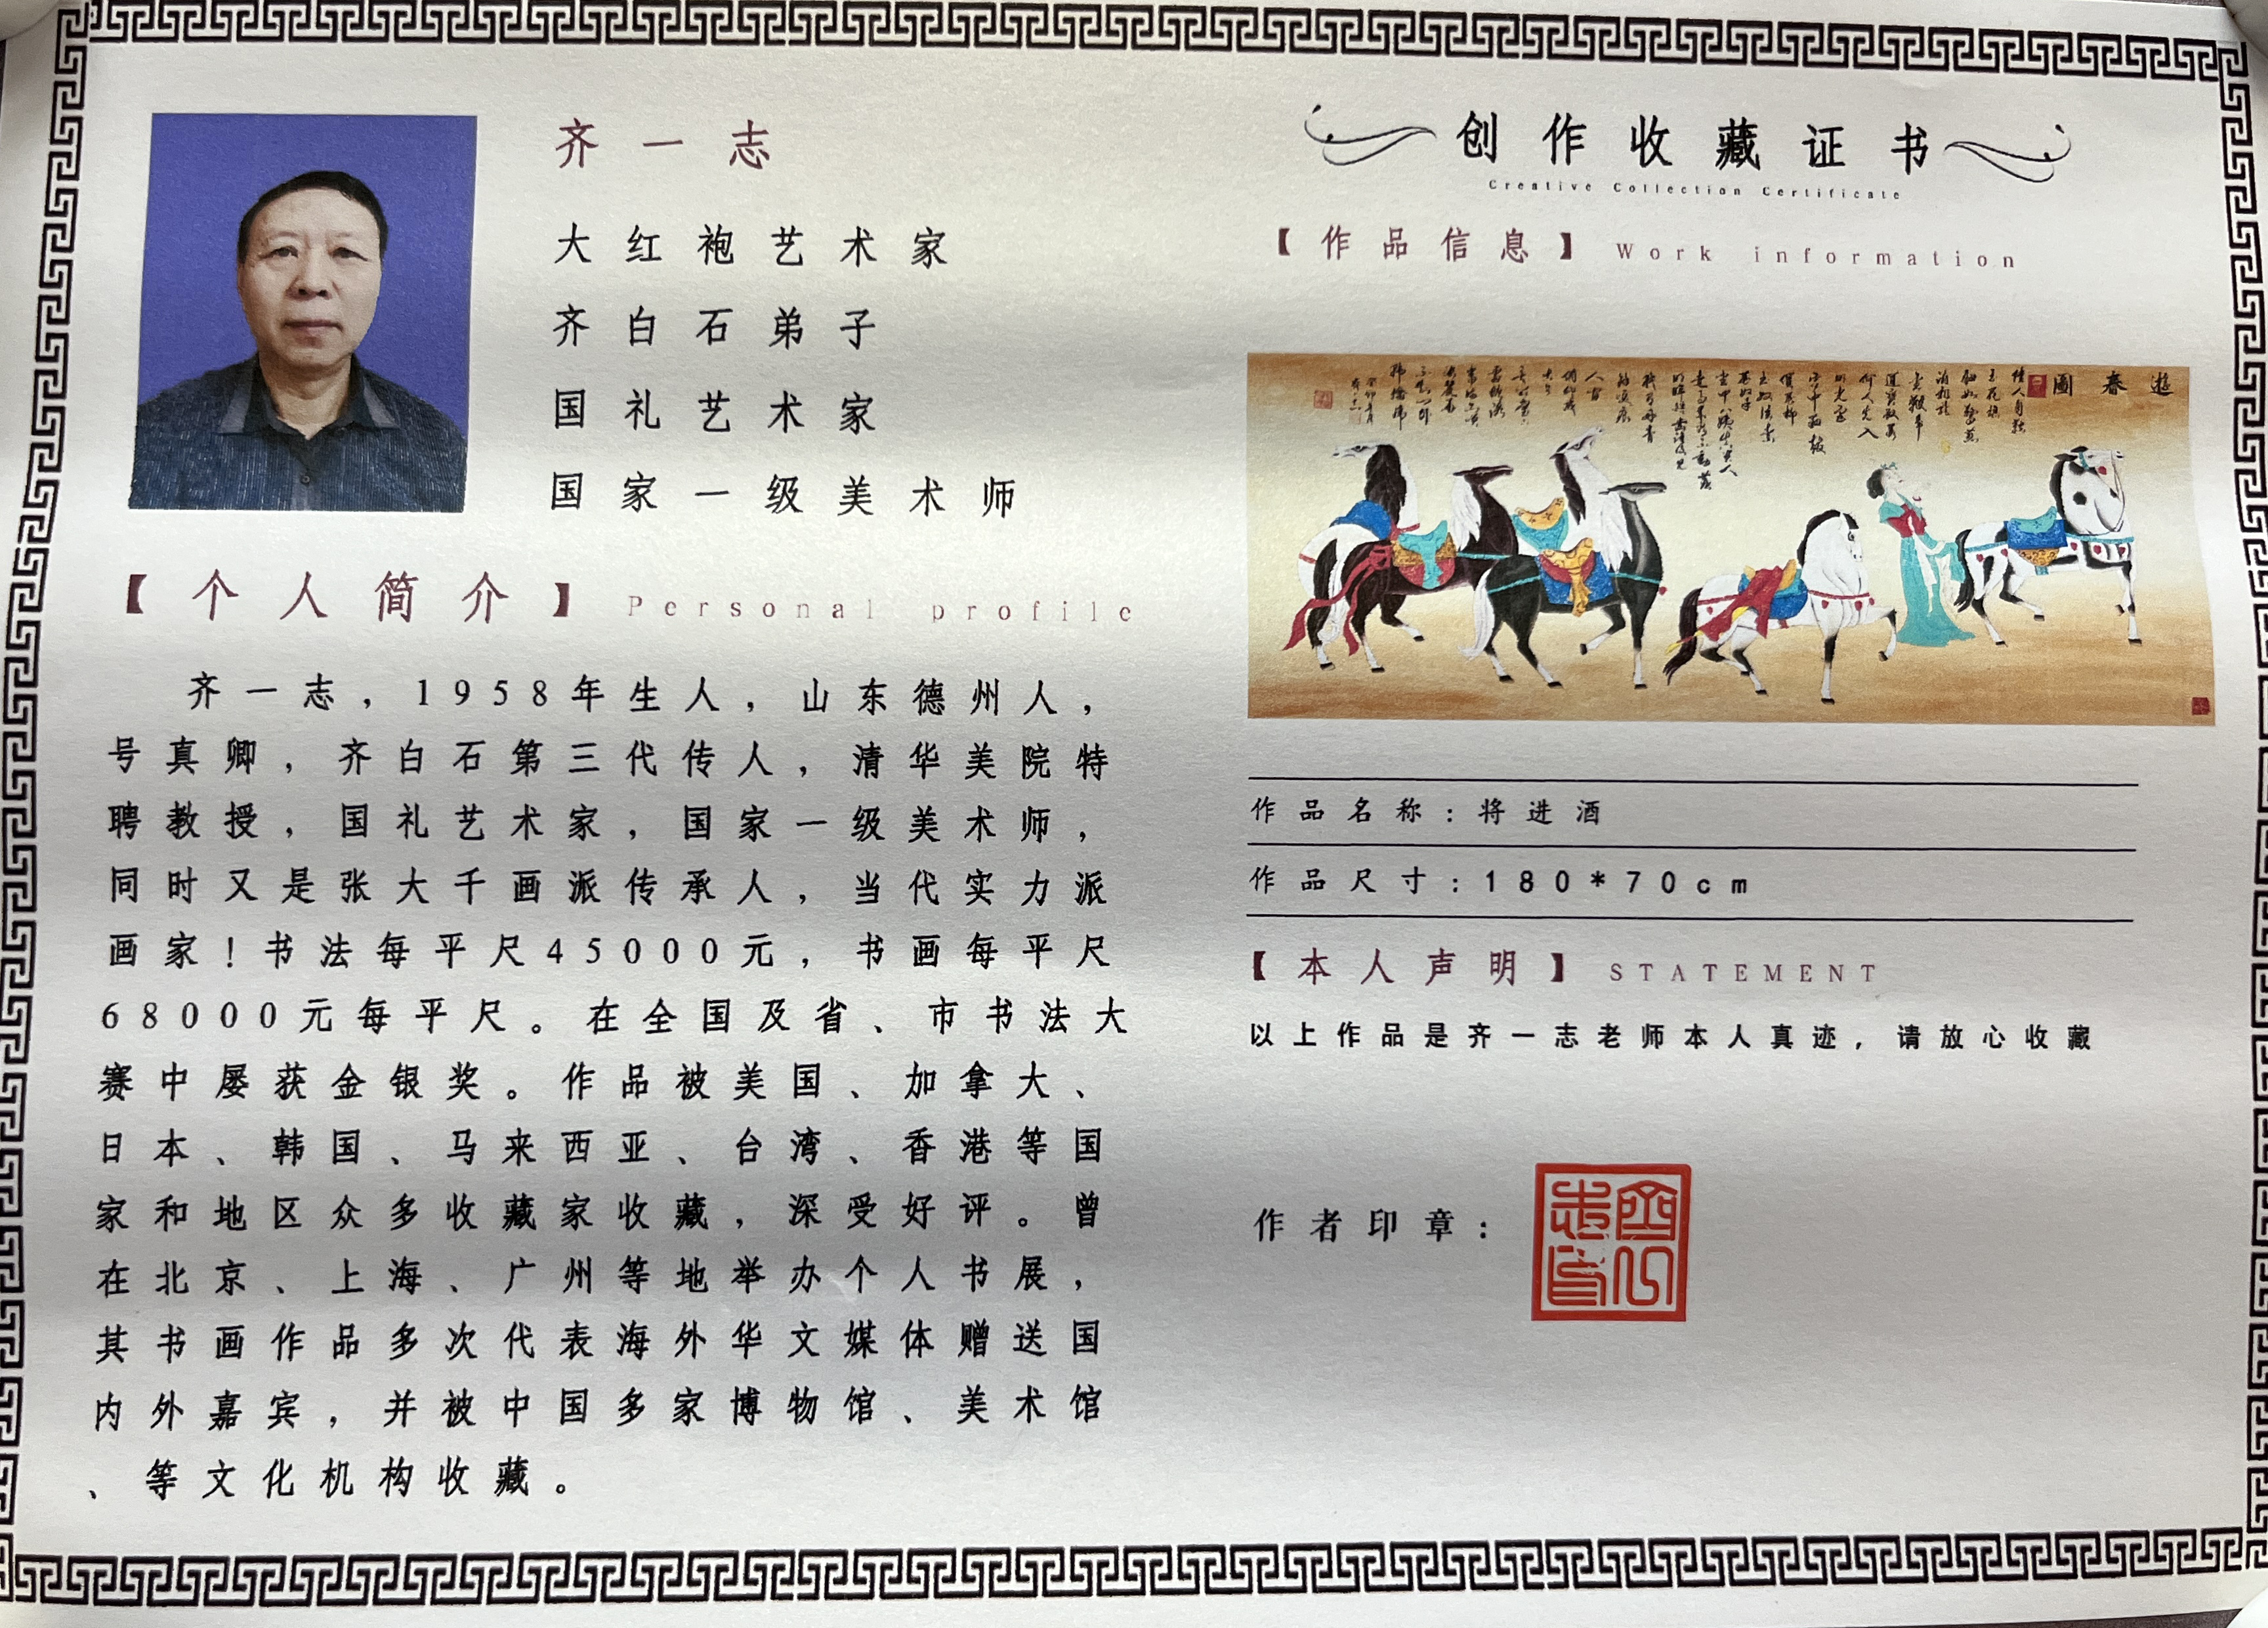 齐一志
大红袍艺术家
齐白石弟子
国礼艺术家
国家一级美术师
【个人简介】Personal profile
齐一志，1958年生人，山东德州人，
号真卿，齐白石第三代传人，清华美院特
聘教授，国礼艺术家，国家一级美术师，
同时又是张大千画派传承人，当代实力派
画家！书法每平尺45000元，书画每平尺
68000元每平尺。在全国及省、市书法大
赛中屡获金银奖。作品被美国、加拿大、
日本、韩国、马来西亚、台湾、香港等国
家和地区众多收藏家收藏，深受好评。曾
在北京、上海、广州等地举办个人书展，
其书画作品多次代表海外华文媒体赠送国
内外嘉宾，并被中国多家博物馆、美术馆
、等文化机构收藏。
创作收藏证书
Creative Collection Certificate
【作品信息】Work information
遊春圖
作品名称：将进酒
作品尺寸：180*70cm
【本人声明】STATEMENT
以上作品是齐一志老师本人真迹，请放心收藏
作者印章：